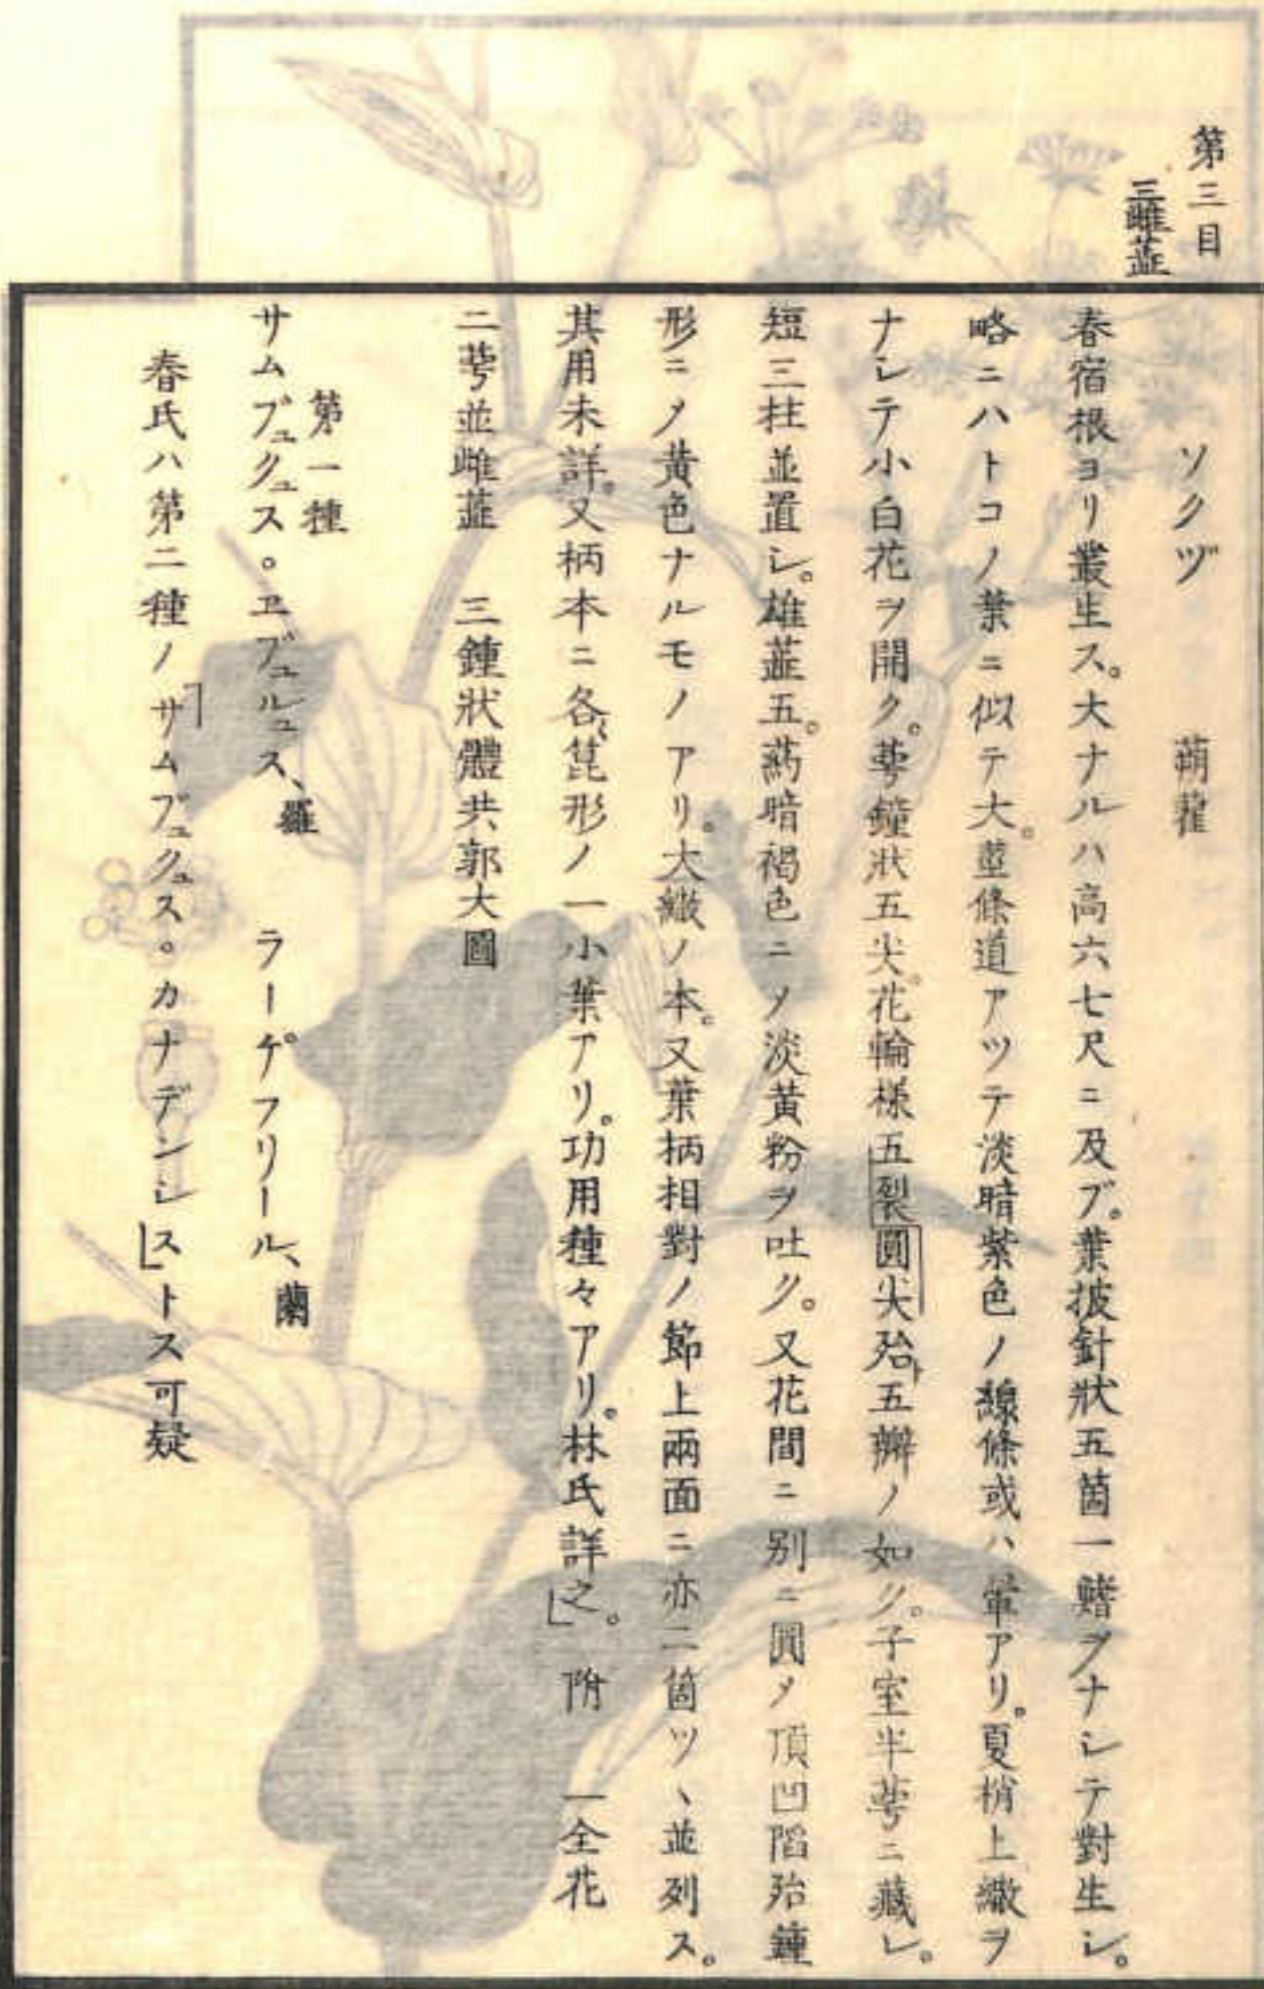 第三目
三雌蘂
ソクヅ　蒴藋
春宿根ヨリ叢生ス。大ナルハ高六七尺ニ及ブ。葉披針狀五箇一鰭ヲナシテ對生シ。
略ニハトコノ葉ニ似テ大。莖條道アツテ淡暗紫色ノ線條或ハ暈アリ。夏梢上繖ヲ
ナシテ小白花ヲ開ク。萼鐘狀五尖。花輪樣五裂圓尖殆ト五瓣ノ如ク。子室半萼ニ藏レ。
短三柱並置シ。雄蘂五。葯暗褐色ニ〆淡黃粉ヲ吐ク。又花間ニ別ニ圓〆頂凹陷殆鐘
形ニ〆黃色ナルモノアリ。大繖ノ本。又葉柄相對ノ節上兩面ニ亦二箇ツヽ並列ス。
其用未詳。又柄本ニ各〻箆形ノ一小葉アリ。功用種々アリ。林氏詳之。」附　一全花
二萼並雌蘂　三鍾狀體共郭大圖
第一種
サムブュクュス。ヱブュルュス、羅　ラーゲフリール、蘭
春氏ハ第二種ノ「サムブュクュス。カナデンシス」トス可疑